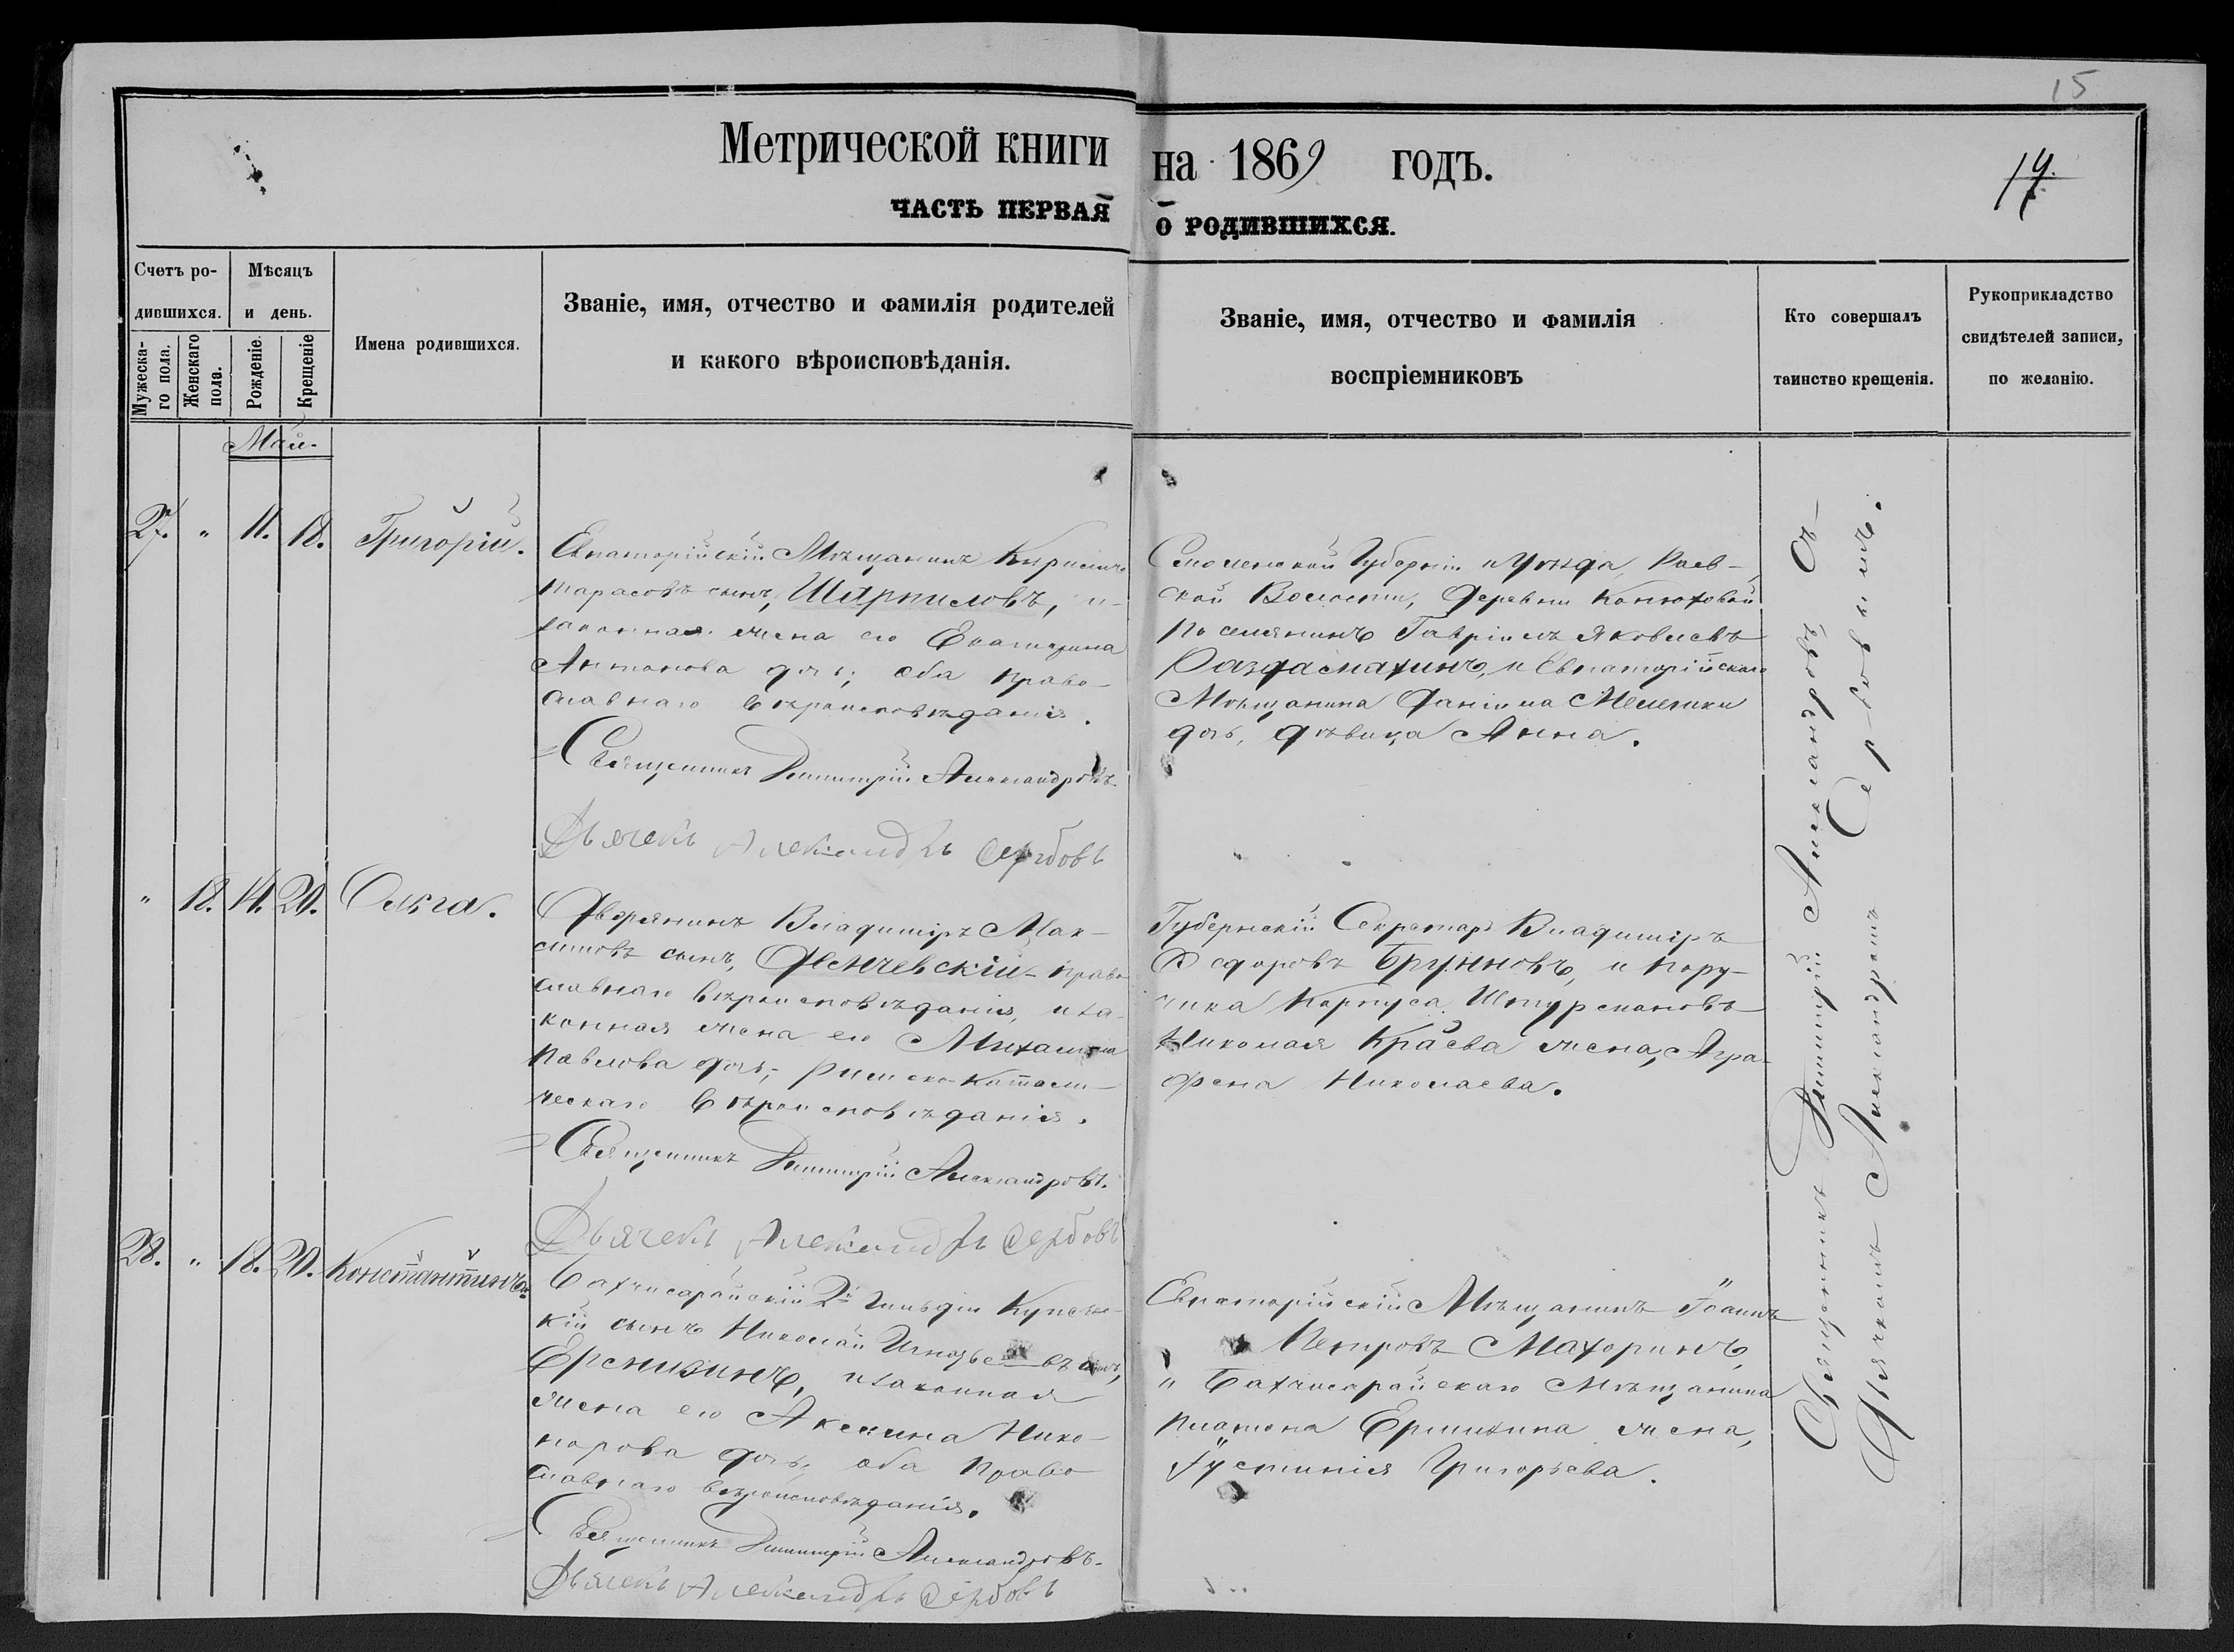 15
Метрической книги на 1869 годъ.
17.
ЧАСТЬ ПЕРВАЯ О РОДИВШИХСЯ.
Счетъ ро-
дившихся.
Мужеска-
го пола.
Женскаго
пола.
Мѣсяцъ
и день.
Рожденіе.
Крещеніе
Имена родившихся.
Званіе, имя, отчество и фамилія родителей
и какого вѣроисповѣданія.
Званіе, имя, отчество и фамилія
воспріемниковъ
Кто совершалъ
таинство крещенія.
Рукоприкладство
свидѣтелей записи,
по желанію.
Май.
27. " 11. 18. Григорій.
Евпаторійскій Мѣщанинъ Кириллъ
Тарасовъ сынъ, и
законная жена его Екатерина
Антонова дочь; оба право-
славнаго вѣроисповѣданія.
Священникъ Димитрій Александровъ.
Дьячекъ Александръ Сербовъ
Смоленской Губерніи и Уѣзда, Раев-
ской Волости, Деревни Конюховой
поселянинъ Гавріилъ Яковлевъ
и Евпаторійскаго
Мѣщанина Даніила Мелешки
дочь, дѣвица Анна.
" 18. 14. 20. Ольга.
Дворянинъ Владиміръ Мак-
симовъ сынъ, право-
славнаго вѣроисповѣданія, и за-
конная жена его Михалина
Павлова дочь; римско-католи-
ческаго вѣроисповѣданія.
Священникъ Димитрій Александровъ.
Дьячекъ Александръ Сербовъ
Губернскій Секретарь Владиміръ
Федоровъ Брунновъ, и Пору-
чика Корпуса Штурмановъ
Николая Краева жена, Агра-
фена Николаева.
28. " 18. 20. Константинъ.
Бахчисарайскій 2й Гильдіи Купечес-
кій сынъ Николай сынъ,
и законная
жена его Акелина Нико-
норова дочь, оба право-
славнаго вѣроисповѣданія.
Священникъ Димитрій Александровъ.
Дьячекъ Александръ Сербовъ
Евпаторійскій Мѣщанинъ Іоаннъ
Петровъ Махоринъ,
и Бахчисарайскаго Мѣщанина
Платона жена,
Іустинія Григорьева.
Священникъ Димитрій Александровъ, Съ
Дьячкомъ Александромъ Сербовымъ.